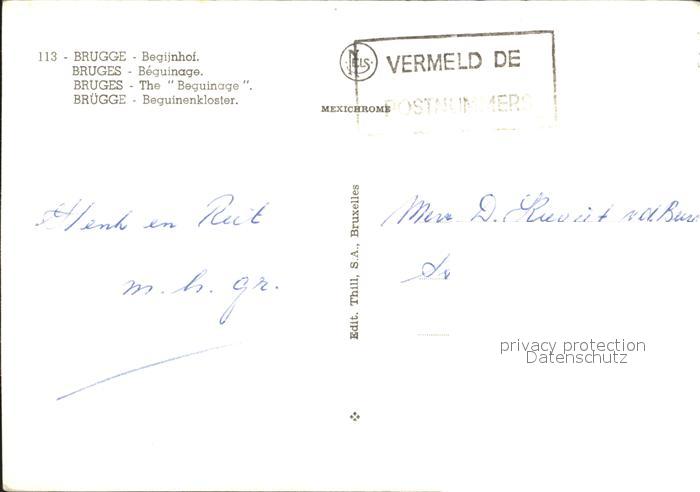 113 - BRUGGE - Begijnhof.
BRUGES - Béguinage.
BRUGES - The "Beguinage".
BRÜGGE - Beguinenkloster.
NELS
VERMELD DE
POSTNUMMERS
MEXICHROME
Henk en Riet
m. h. gr.
Edit. Thill, S.A., Bruxelles
Mevr D. v.d.
privacy protection
Datenschutz